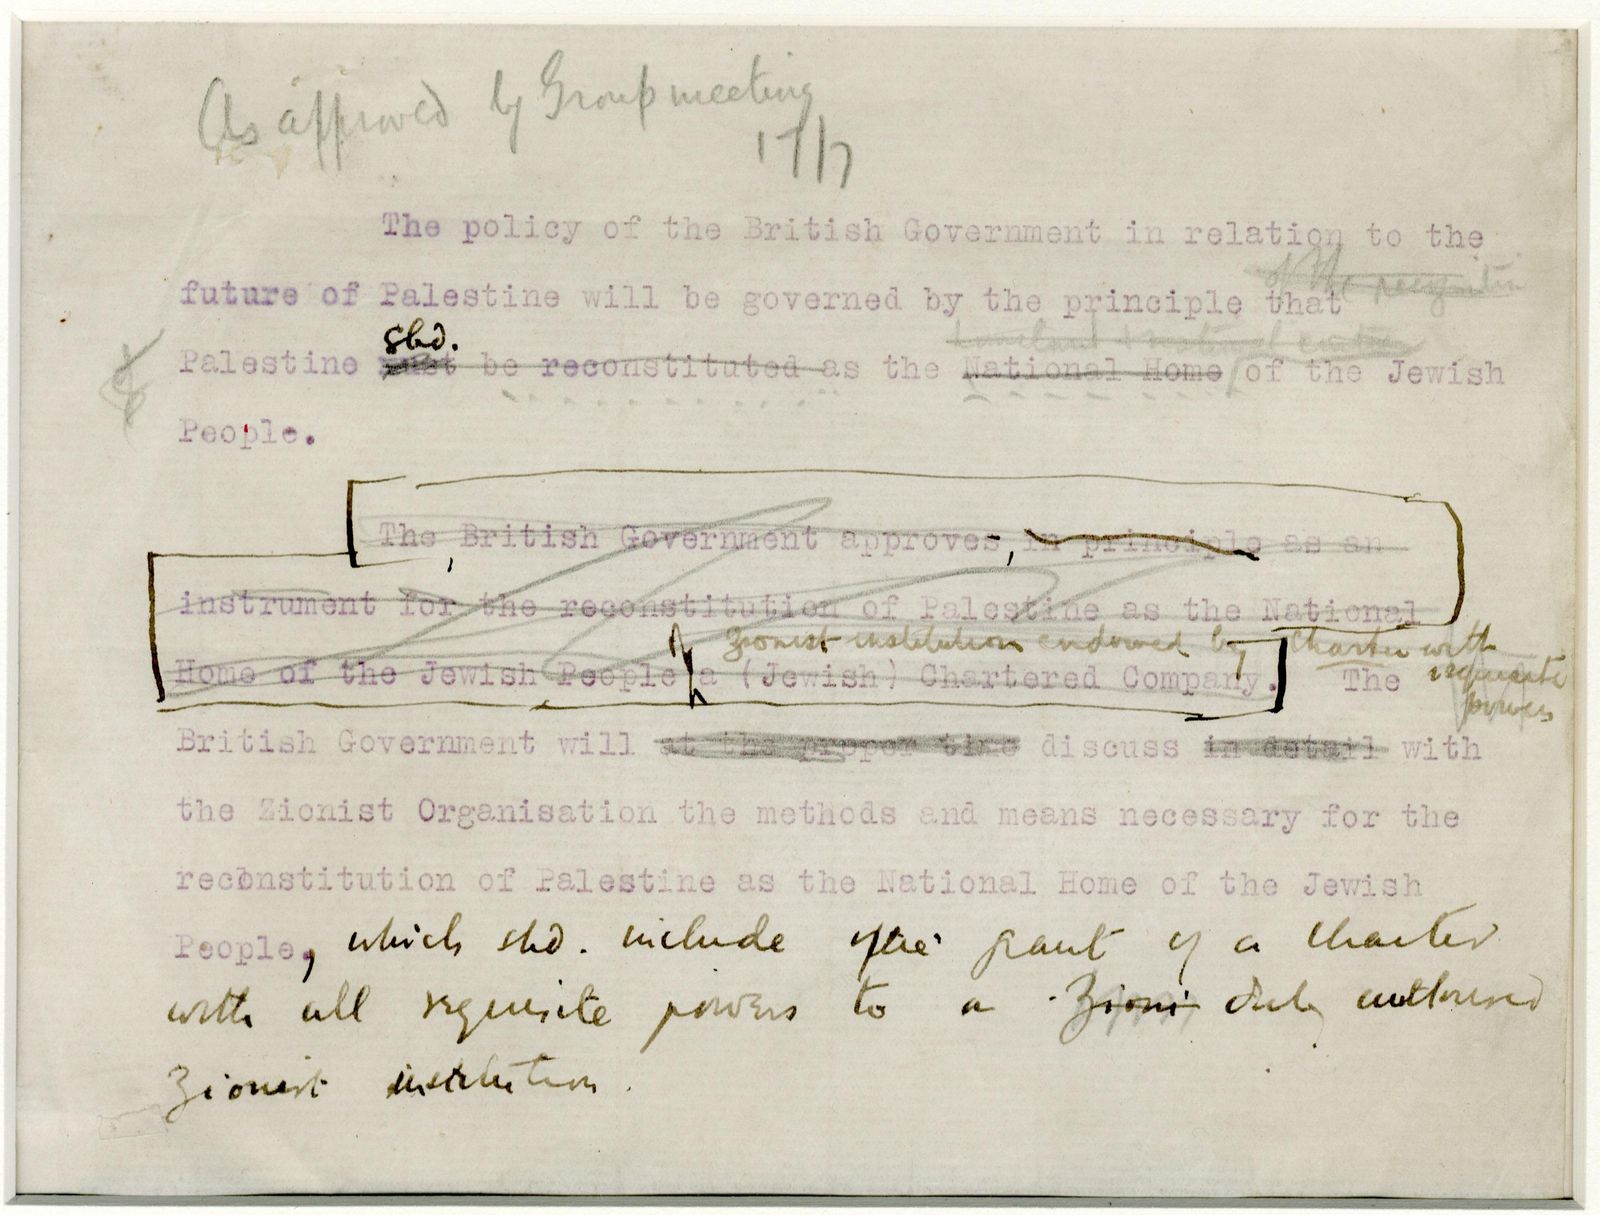 As approved by Group meeting
17/7
The policy of the British Government in relation to the
of the recognition
future of Palestine will be governed by the principle that
shd.
Palestine must be reconstituted as the National Home of the Jewish
People.
The British Government approves, in principle as an
instrument for the reconstitution of Palestine as the National
Zionist institution endowed by Charter with
Home of the Jewish People a (Jewish) Chartered Company. The
requisite
powers
British Government will at the proper time discuss in detail with
the Zionist Organisation the methods and means necessary for the
reconstitution of Palestine as the National Home of the Jewish
People, which shd. include the grant of a charter
with all requisite powers to a Zioni duly authorised
Zionist institution.